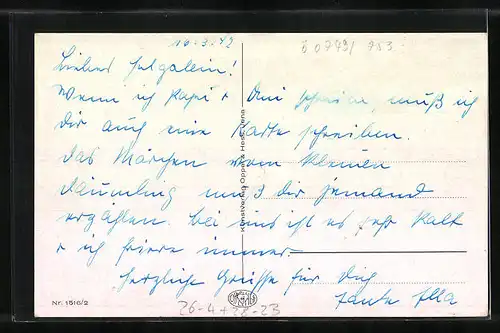 16.3.42
Ü 0743/ 753
Liebes Helgalein!
Wenn ich Papi + Omi schreibe, muß ich
dir auch eine Karte schreiben.
Das Märchen vom kleinen
Däumling muß dir jemand
erzählen. bei uns ist es sehr kalt
+ ich friere immer.
herzliche Grüsse für Dich
Tante Ella
Kunstverlag Oppel & Hess, Jena
Nr. 1516/2
26-4+28-23